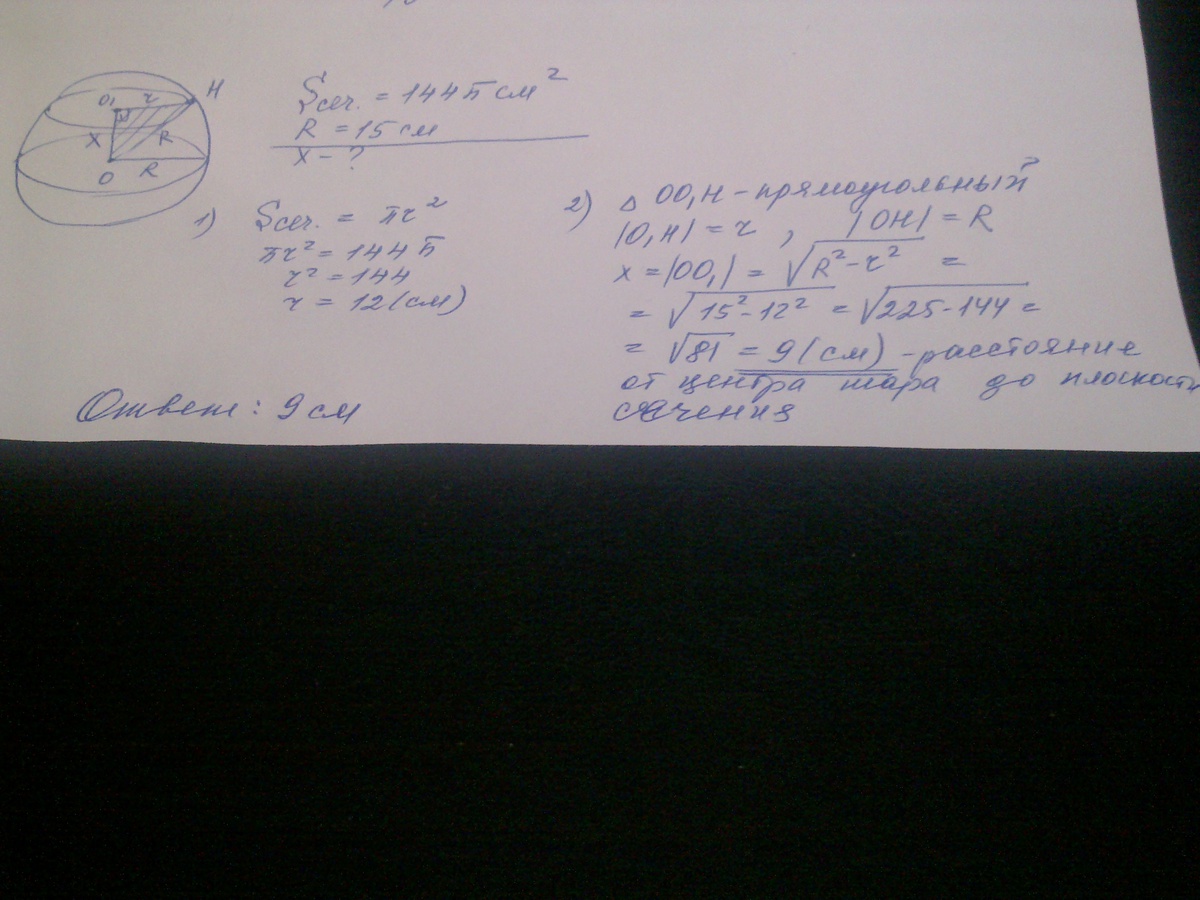 O₁ r H
X R
O R
Sсеч. = 144π см²
R = 15 см
X - ?
1) Sсеч. = πr²
πr² = 144π
r² = 144
r = 12 (см)
2) △ OO₁H - прямоугольный
|O₁H| = r , |OH| = R
x = |OO₁| = √R² - r² =
= √15² - 12² = √225 - 144 =
= √81 = 9 (см) - расстояние
от центра шара до плоскости
сечения
Ответ: 9 см